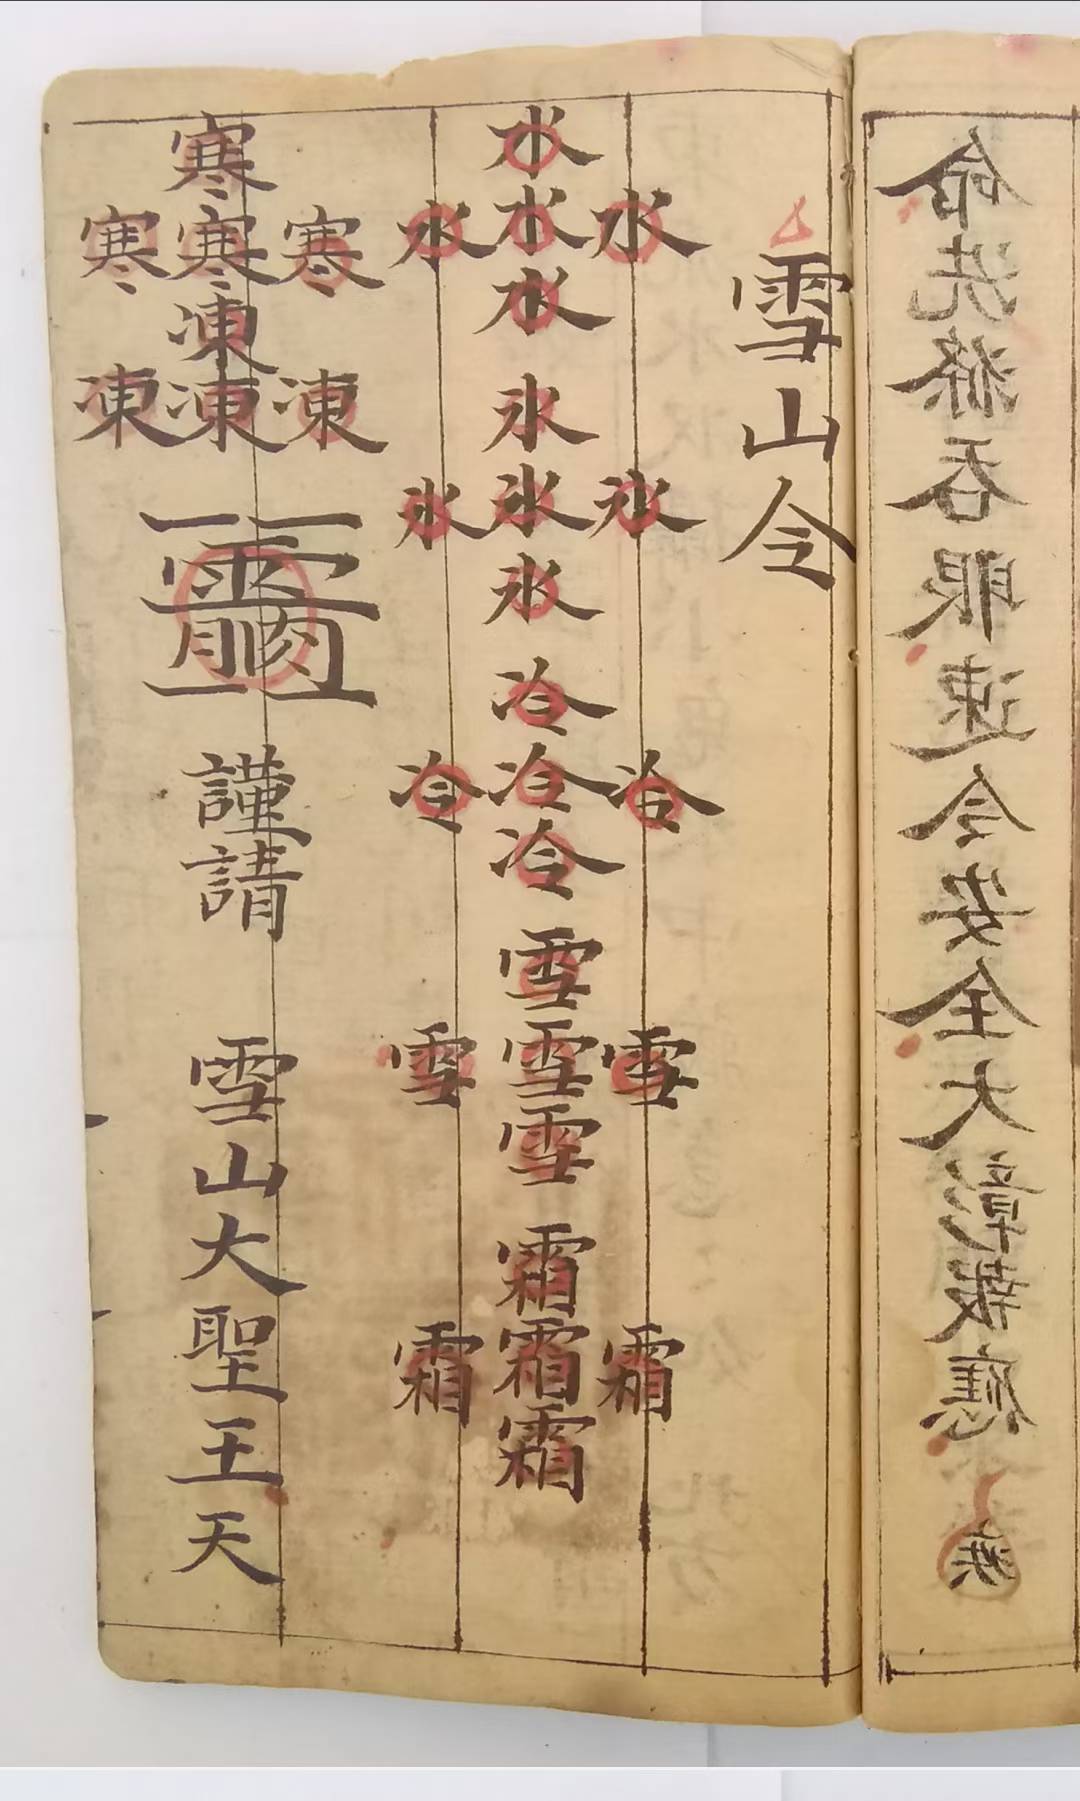 命洗滌吞服速令安全大彰報應
雪山令
水氷冷雪霜
水水水氷氷氷冷冷冷雪雪雪霜霜霜
水氷冷雪霜
寒凍
寒寒凍凍 謹請 雪山大聖王天
寒凍